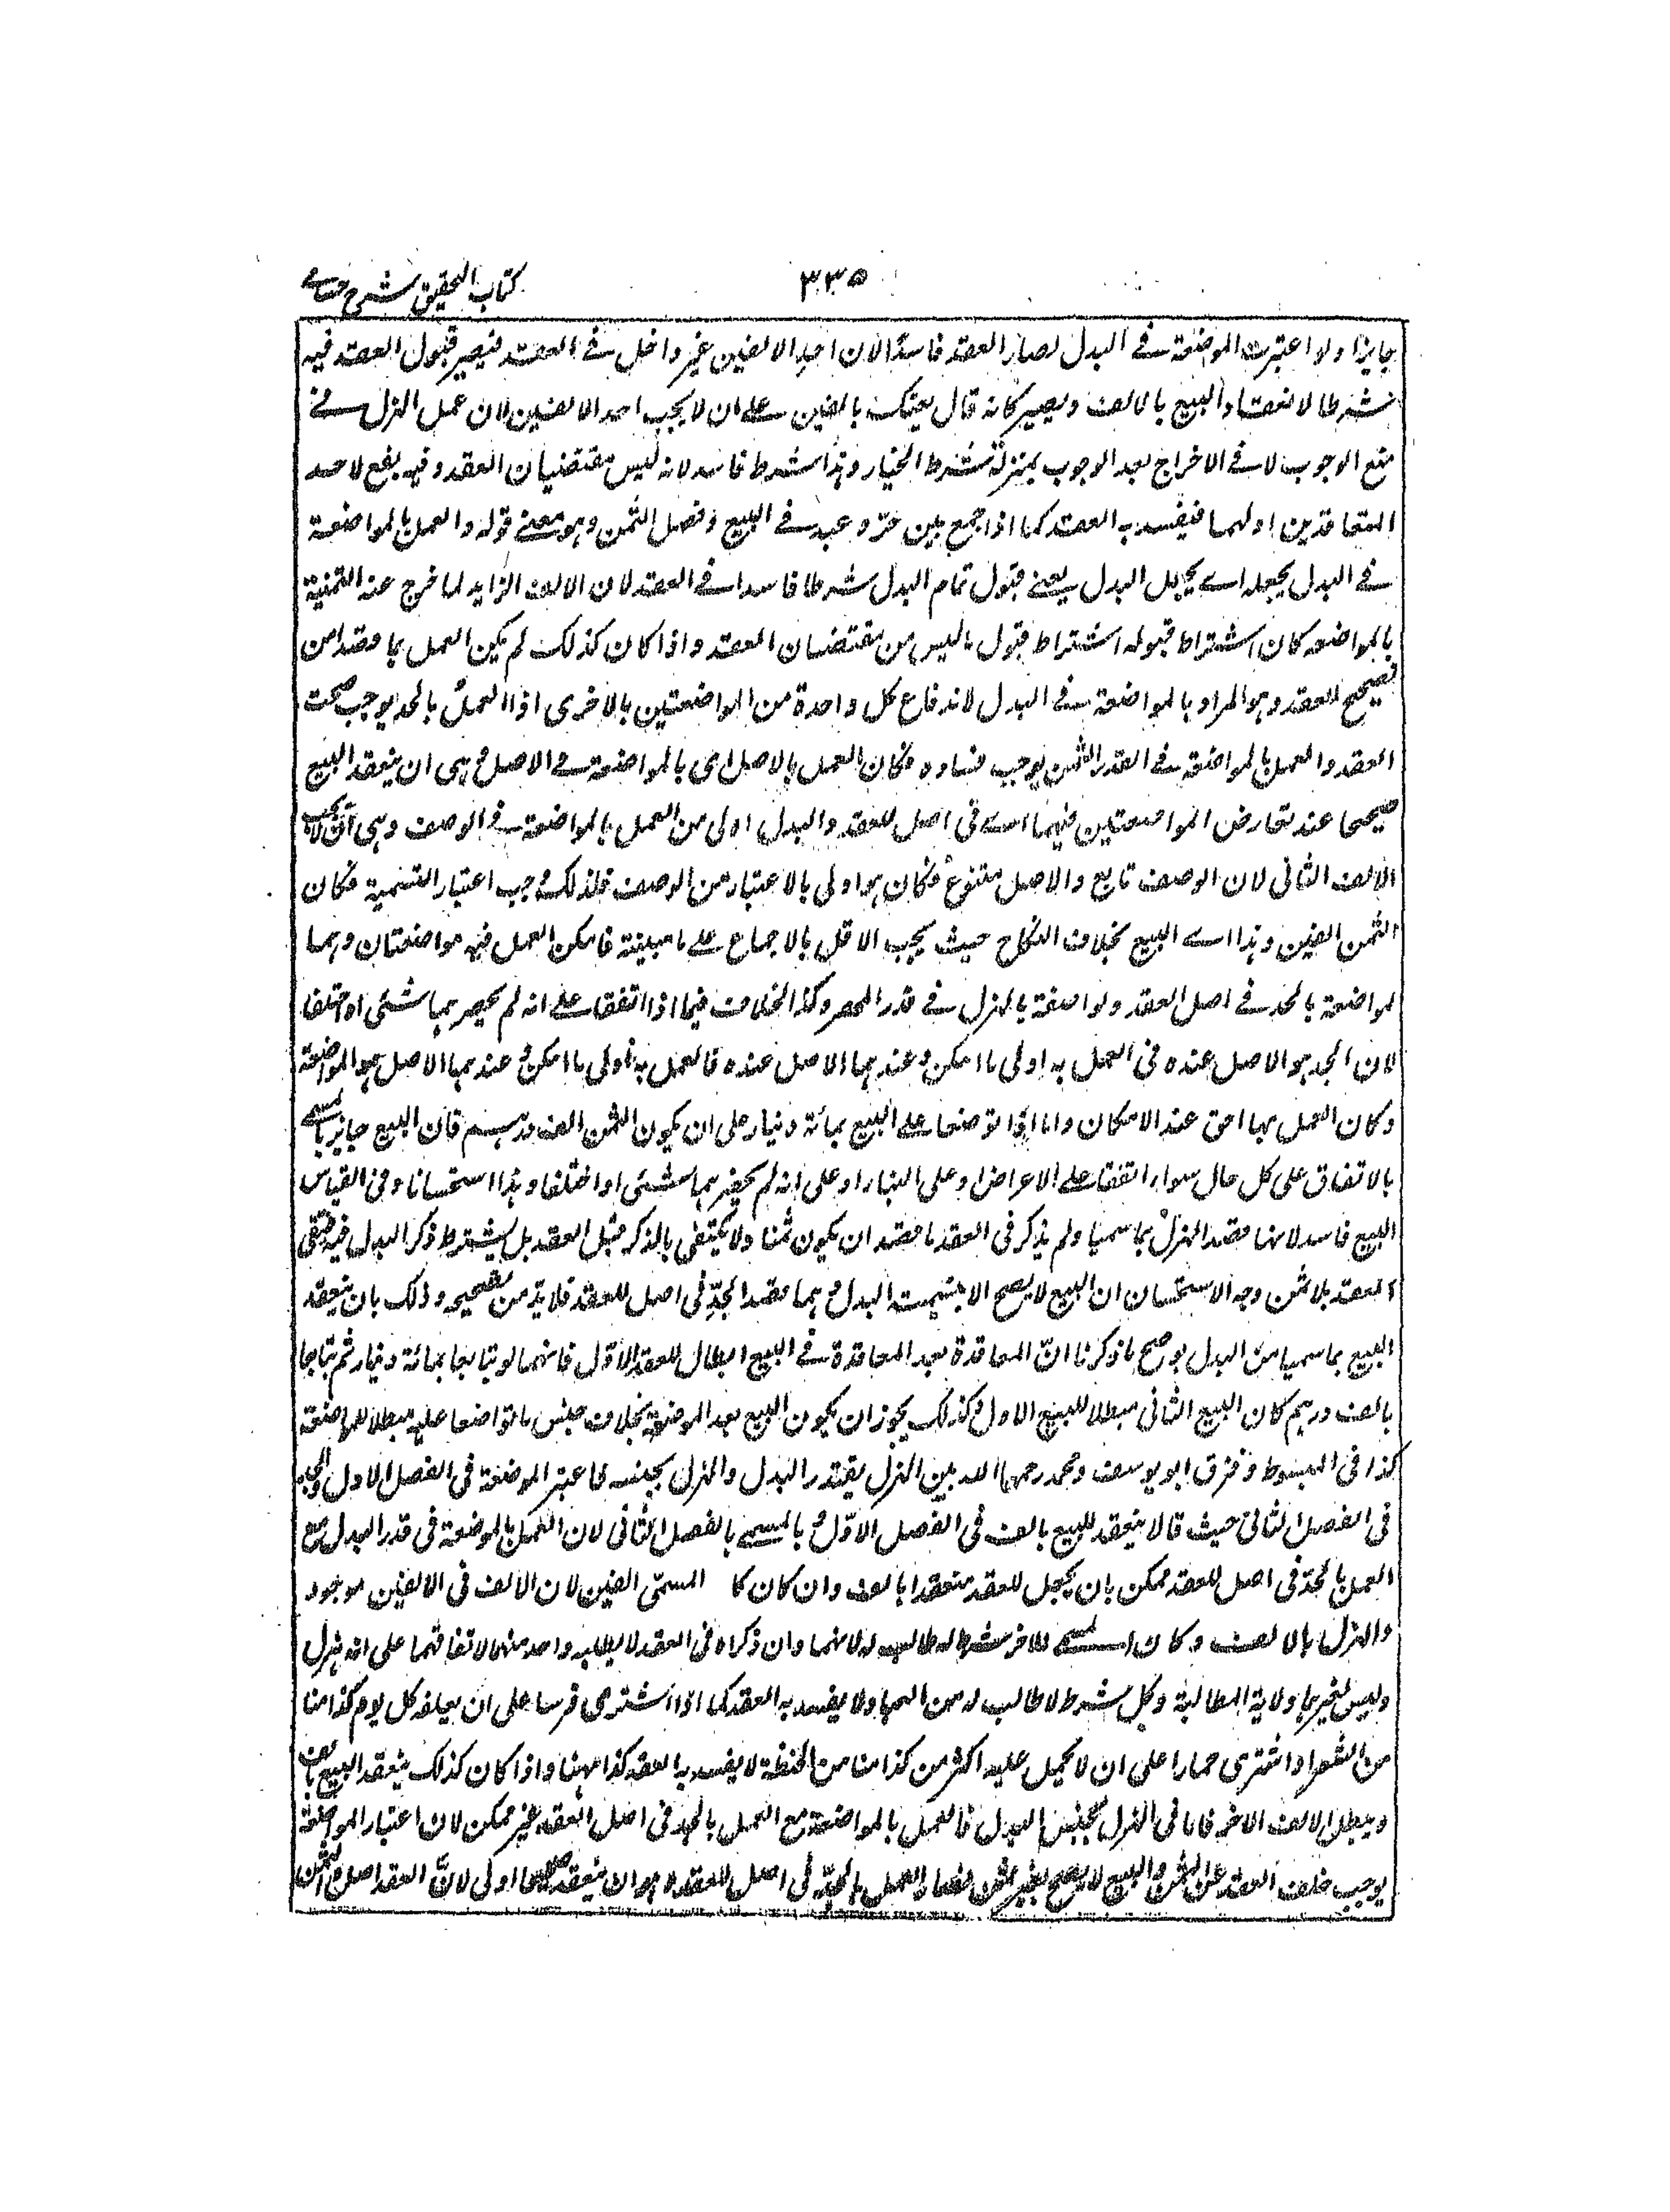 كتاب التحقيق شرح حسامی
٣٣٥
جايزا ولو اعتبرت المواضعة فے البدل لصار العقد فاسدًا لان احد الالفين غير داخل فے العقد فيصير قبول العقد فيه
شرطا لانعقاد البيع بالالف ويصير كانه قال بعتك بالفين علے ان لا يجب احد الالفين لان عمل الهزل فے
منع الوجوب لا فے الاخراج بعد الوجوب بمنزلة شرط الخيار وهذا شرط فاسد لانه ليس مقتضيات العقد وفيه نفع لاحد
المتعاقدين او لهما فيفسد به العقد كما اذا جمع بين حرّ وعبد فے البيع وفصل الثمن وهو معنے قوله والعمل بالمواضعة
فے البدل يجعله اے يجعل البدل يعنے قبول تمام البدل شرطا فاسدا فے العقد لان الالف الزايد لما خرج عنه الثمنية
بالمواضعه كان اشتراط قبوله اشتراط قبول ما ليس من مقتضات العقد واذا كان كذلك لم يكن العمل بما قصدا من
تصحيح العقد وهو المراد بالمواضعة فے البدل لاندفاع كل واحدة من المواضعتين بالاخرى اذا العمل بالجد يوجب صحت
العقد والعمل بالمواضعة فے القدر الثمن يوجب فساده فكان العمل بالاصل اى بالمواضعة فے الاصل وهى ان ينعقد البيع
صحيحا عند تعارض المواضعتين فيهما اے فى اصل العقد والبدل اولى من العمل بالمواضعة فے الوصف وهى ان لا يجب
الالف الثانى لان الوصف تابع والاصل متبوع فكان هو اولى بالاعتبار من الوصف فلذلك وجب اعتبار التسمية فكان
الثمن الفين وهذا اے البيع بخلاف النكاح حيث يجب الاقل بالاجماع علے ما نبينه فامكن العمل فيه مواضعتان وهما
لمواضعة بالجد فے اصل العقد ولمواضعة بالهزل فے قدر المهر وكذا الخلاف فيما اذا اتفقا علے انه لم يحضر بهما شئى او اختلفا
لان الجد هو الاصل عنده فى العمل به اولى ما امكن وعندهما الاصل عنده فالعمل به اولى ما امكن وعندهما الاصل هو المواضعة
وكان العمل بها احق عند الامكان واما اذا تواضعا علے البيع بمائة دينار على ان يكون الثمن الف درهم فان البيع جايز بالمسمے
بالاتفاق على كل حال سواء اتفقا علے الاعراض او على البناء او على انه لم يحضرهما شئى او اختلفا وهذا استحسانا وفى القياس
البيع فاسد لانهما قصدا الهزل بما سميا ولم يذكر فى العقد ما قصدا ان يكون ثمنا ولا يكتفى بالذكر قبل العقد بل يشترط ذكر البدل فيه فبقى
العقد بلا ثمن وجه الاستحسان ان البيع لا يصح الا بتسمية البدل وهما قصدا الجدّ فى اصل العقد فلا بدّ من تصحيحه وذلك بان ينعقد
البيع بما سميا من البدل يوضح ما ذكرنا انّ المعاقدة بعد المعاقدة فے البيع ابطال للعقد الاوّل فانهما لو تبايعا بمائة دينار ثم تبايعا
بالف درهم كان البيع الثانى مبطلا للبيع الاول وكذلك يجوز ان يكون البيع بعد المواضعة بخلاف جنس ما تواضعا عليه مبطلا للمواضعة
كذا فى المبسوط وفرق ابو يوسف ومحمد رحمهما الله بين الهزل بقدر البدل والهزل بجنسه فاعتبر المواضعة فى الفصل الاول والجد
فى الفصل الثانى حيث قالا ينعقد البيع بالف فى الفصل الاوّل وبالمسمے بالفصل الثانى لان العمل بالمواضعة فى قدر البدل مع
العمل بالجدّ فى اصل العقد ممكن بان يجعل العقد منعقدا بالف وان كان كا المسمّى الفين لان الالف فى الالفين موجود
والهزل بالالف وكان المسمے للاخر شرط لا طالب له لانهما وان ذكراه فى العقد لا يطالبه واحد منهما لاتفاقهما على انه هزل
وليس لغيرهما ولاية المطالبة وكل شرط لا طالب له من العباد لا يفسد به العقد كما اذا اشترى فرسا على ان يعلفه كل يوم كذا منا
من الشعير او اشترى حمارا على ان لا يحمل عليه اكثر من كذا منا من الحنطة لا يفسد به العقد كذا ههنا واذا كان كذلك ينعقد البيع بالف
ويبطل الالف الاخر فاما فى الهزل بجنس البدل فالعمل بالمواضعة مع العمل بالجد فى اصل العقد غير ممكن لان اعتبار المواضعة
يوجب خلف العقد عن الثمن والبيع لا يصح بغير ثمن فصار العمل بالجدّ فى اصل العقد وهو ان ينعقد صحيحا اولى لانّ العقد اصل والثمن